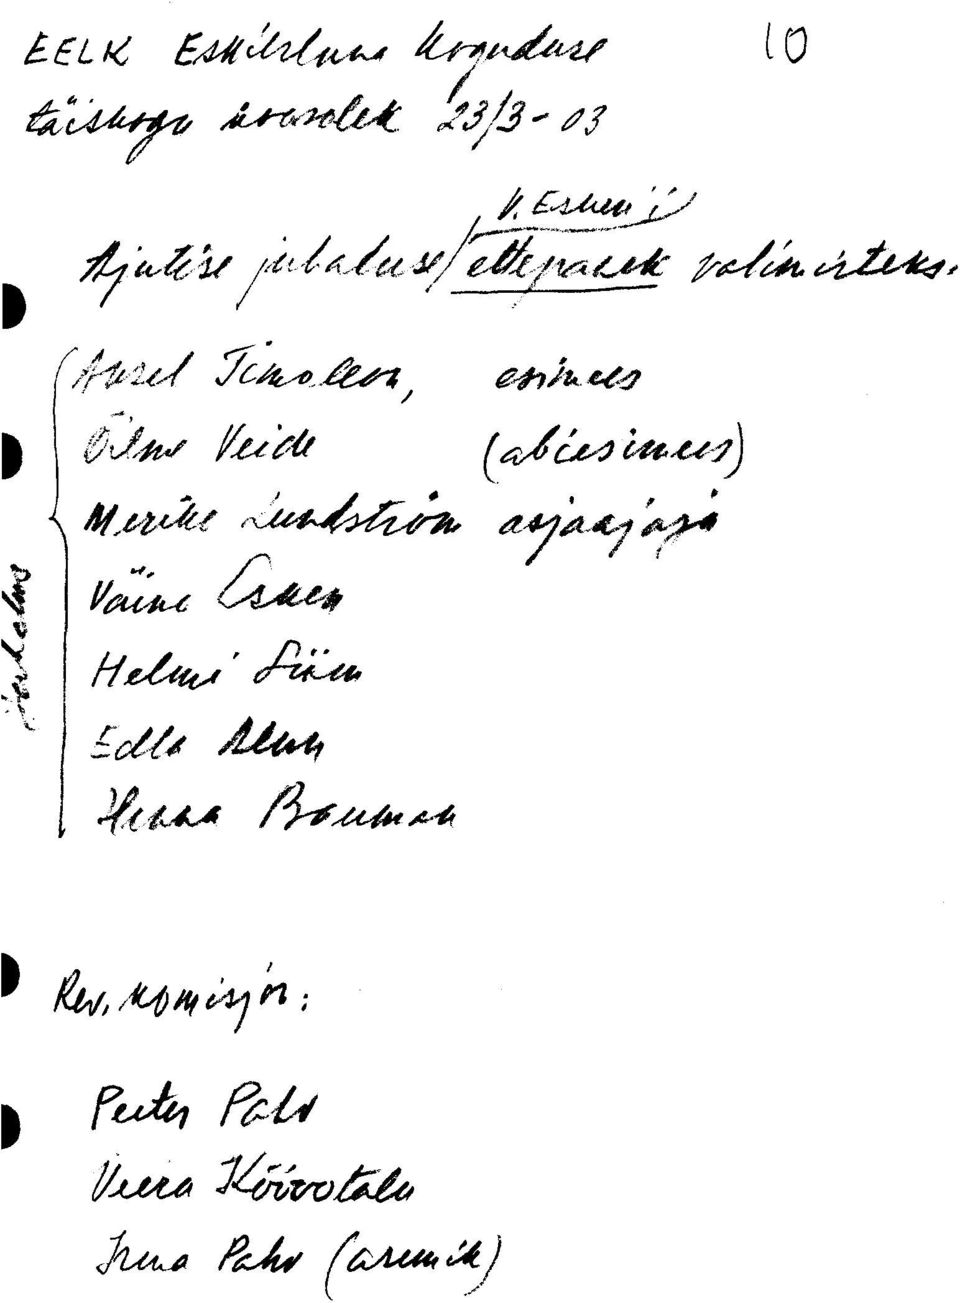 EELK Eskilstuna Koguduse 10
täiskogu koosolek 23/3-03
V. Esken'i
Ajutise juhatuse/ettepanek valimisteks.
Aksel Timoleon, esimees
Õilme Veide (abiesimees)
Merike Lundström asjaajaja
Väino Esken
Helmi Siim
Edla
Henna Bauman
Juhatus
Rev. komisjon:
Peeter Pahv
Veera Kõivotalu
Irena Pahv (asemik)